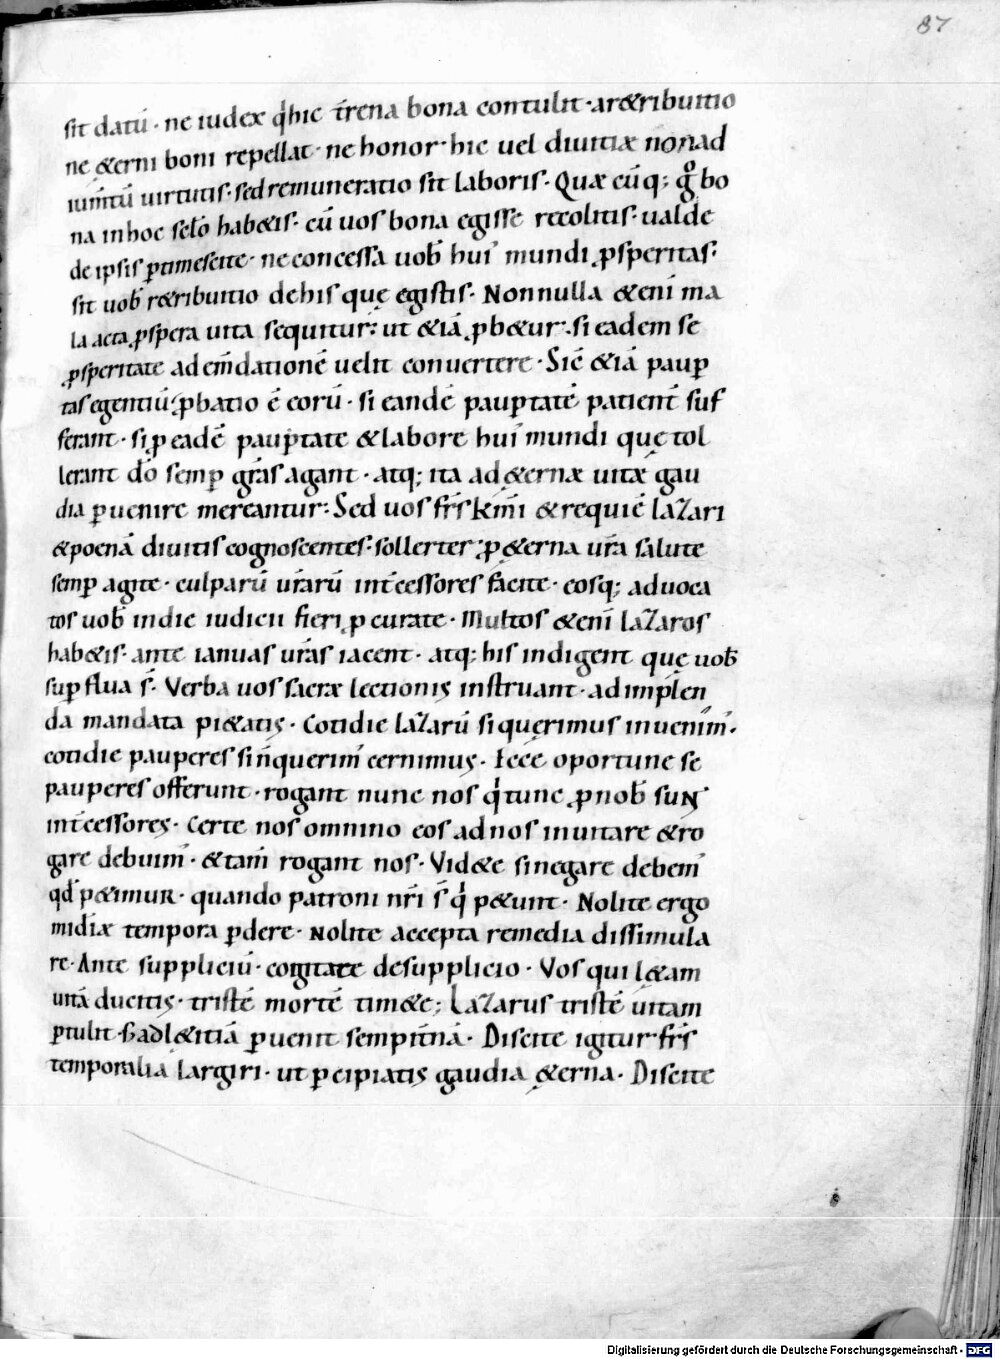 87
sit datū · ne iudex qͥ hic t̄rena bona contulit · a r&ributio
ne &erni boni repellat · ne honor · hic uel diuitiæ non ad
ium̄tū uirtutis · sed remuneratio sit laboris · Quæ cūq; g̊ bo
na in hoc sc̄lo hab&is · cū uos bona egisse recolitis · ualde
de ipsis ꝑtimescite · ne concessa uob̄ hui᾽ mundi ꝓsperitas ·
sit uob̄ r&ributio de his quę egistis · Nonnulla &eni᾽ ma
la acta ꝓspera uita sequitur: ut &iā ꝓb&ur · si eadem se
ꝓsperitate ad em̄dationē uelit conuertere · Sic̄ &iā pauꝑ
tas egentiū ꝓbatio ē eorū · si eandē pauꝑtatē patient̄ suf
ferant · si ꝓ eadē pauꝑtate & labore hui᾽ mundi quę tol
lerant dō semꝑ gr̄as agant · atq; ita ad &ernæ uitæ gau
dia ꝑuenire mereantur: Sed uos fr̄s km̄i & requiē lazari
& poenā diuitis cognoscentes · sollerter ꝓ &erna ur̄a salute
semꝑ agite · culparū ur̄arū int̄cessores facite · eosq; aduoca
tos uob̄ in die iudicii fieri ꝓcurate · Multos &eni᾽ lazaros
hab&is · ante ianuas ur̄as iacent · atq; his indigent quę uob̄
suꝑflua s̄ · Verba uos sacræ lectionis instruant · ad implen
da mandata pi&atis · Cotidie lazarū si querimus inuenim᾽ ·
cotidie pauperes si n̄ querim᾽ cernimus · Ecce oportune se
pauperes offerunt · rogant nunc nos qͥ tunc ꝓ nob̄ sunt
int̄cessores · Certe nos omnino eos ad nos inuitare & ro
gare debuim᾽ · & tam̄ rogant nos · Vid&e si negare debem᾽
qd̄ p&imur · quando patroni nr̄i s̄ qͥ p&unt · Nolite ergo
mīdiæ tempora ꝑdere · Nolite accepta remedia dissimula
re · Ante suppliciū · cogitate de supplicio · Vos qui l&am
uitā ducitis · tristē mortē tim&e; Lazarus tristē uitam
ꝑtulit · s; ad l&itiā ꝑuenit sempit̄nā · Discite igitur fr̄s
temporalia largiri · ut ꝑcipiatis gaudia &erna · Discite
Digitalisierung gefördert durch die Deutsche Forschungsgemeinschaft - DFG